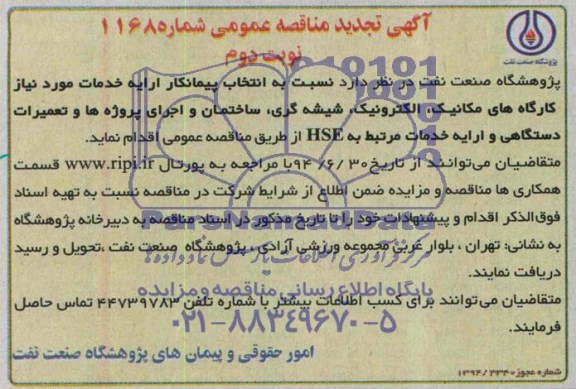 آگهی تجدید مناقصه عمومی شماره ۱۱۶۸
نوبت دوم
پژوهشگاه صنعت نفت
پژوهشگاه صنعت نفت در نظر دارد نسبت به انتخاب پیمانکار ارایه خدمات مورد نیاز
کارگاه های مکانیک، الکترونیک، شیشه گری، ساختمان و اجرای پروژه ها و تعمیرات
دستگاهی و ارایه خدمات مرتبط به HSE از طریق مناقصه عمومی اقدام نماید.
متقاضیان می‌توانند از تاریخ ۹۴/۶/۳۰ با مراجعه به پورتال www.ripi.ir قسمت
همکاری ها مناقصه و مزایده ضمن اطلاع از شرایط شرکت در مناقصه نسبت به تهیه اسناد
فوق‌الذکر اقدام و پیشنهادات خود را تا تاریخ مذکور در اسناد مناقصه به دبیرخانه پژوهشگاه
ParsNamadData
به نشانی: تهران ، بلوار غربی مجموعه ورزشی آزادی ، پژوهشگاه صنعت نفت ،تحویل و رسید
دریافت نمایند.
پایگاه اطلاع رسانی مناقصه و مزایده
متقاضیان می‌توانند برای کسب اطلاعات بیشتر با شماره تلفن ۴۴۷۳۹۷۸۳ تماس حاصل
فرمایند.
۰۲۱-۸۸۳۴۹۶۷۰-۵
امور حقوقی و پیمان های پژوهشگاه صنعت نفت
شماره مجوز: ۱۳۹۴/۲۳۴۰